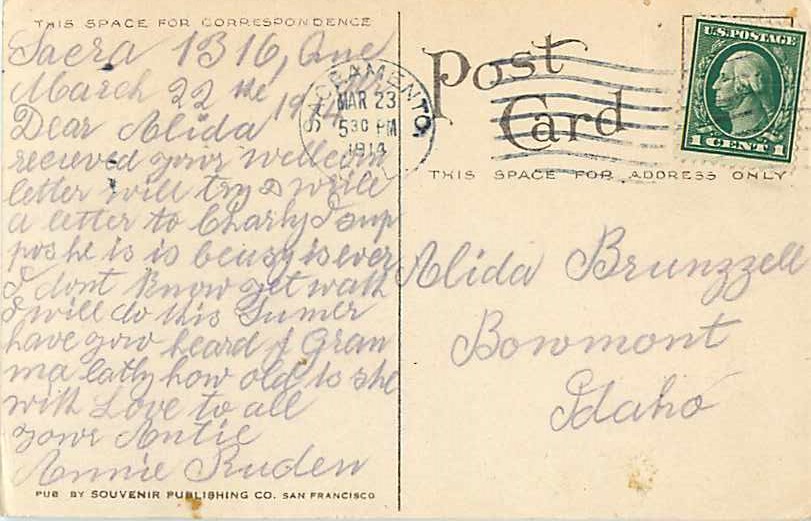 THIS SPACE FOR CORRESPONDENCE
Sacra 1316, Que
March 22 the 1914
Dear Alida
recieved your wellcom
letter will try & write
a letter to Charly I sup
pos he is is beusy is ever
I dont know yet wath
I will do this Sumer
have yow heard f Gran
ma latly how old is she
with Love to all
yowr Antie
Annie Ruden
PUB BY SOUVENIR PUBLISHING CO. SAN FRANCISCO
SACRAMENTO
MAR 23
530 PM
1914
Post
Card
THIS SPACE FOR ADDRESS ONLY
U.S. POSTAGE
1 CENT 1
Alida Brunzzell
Bowmont
Idaho